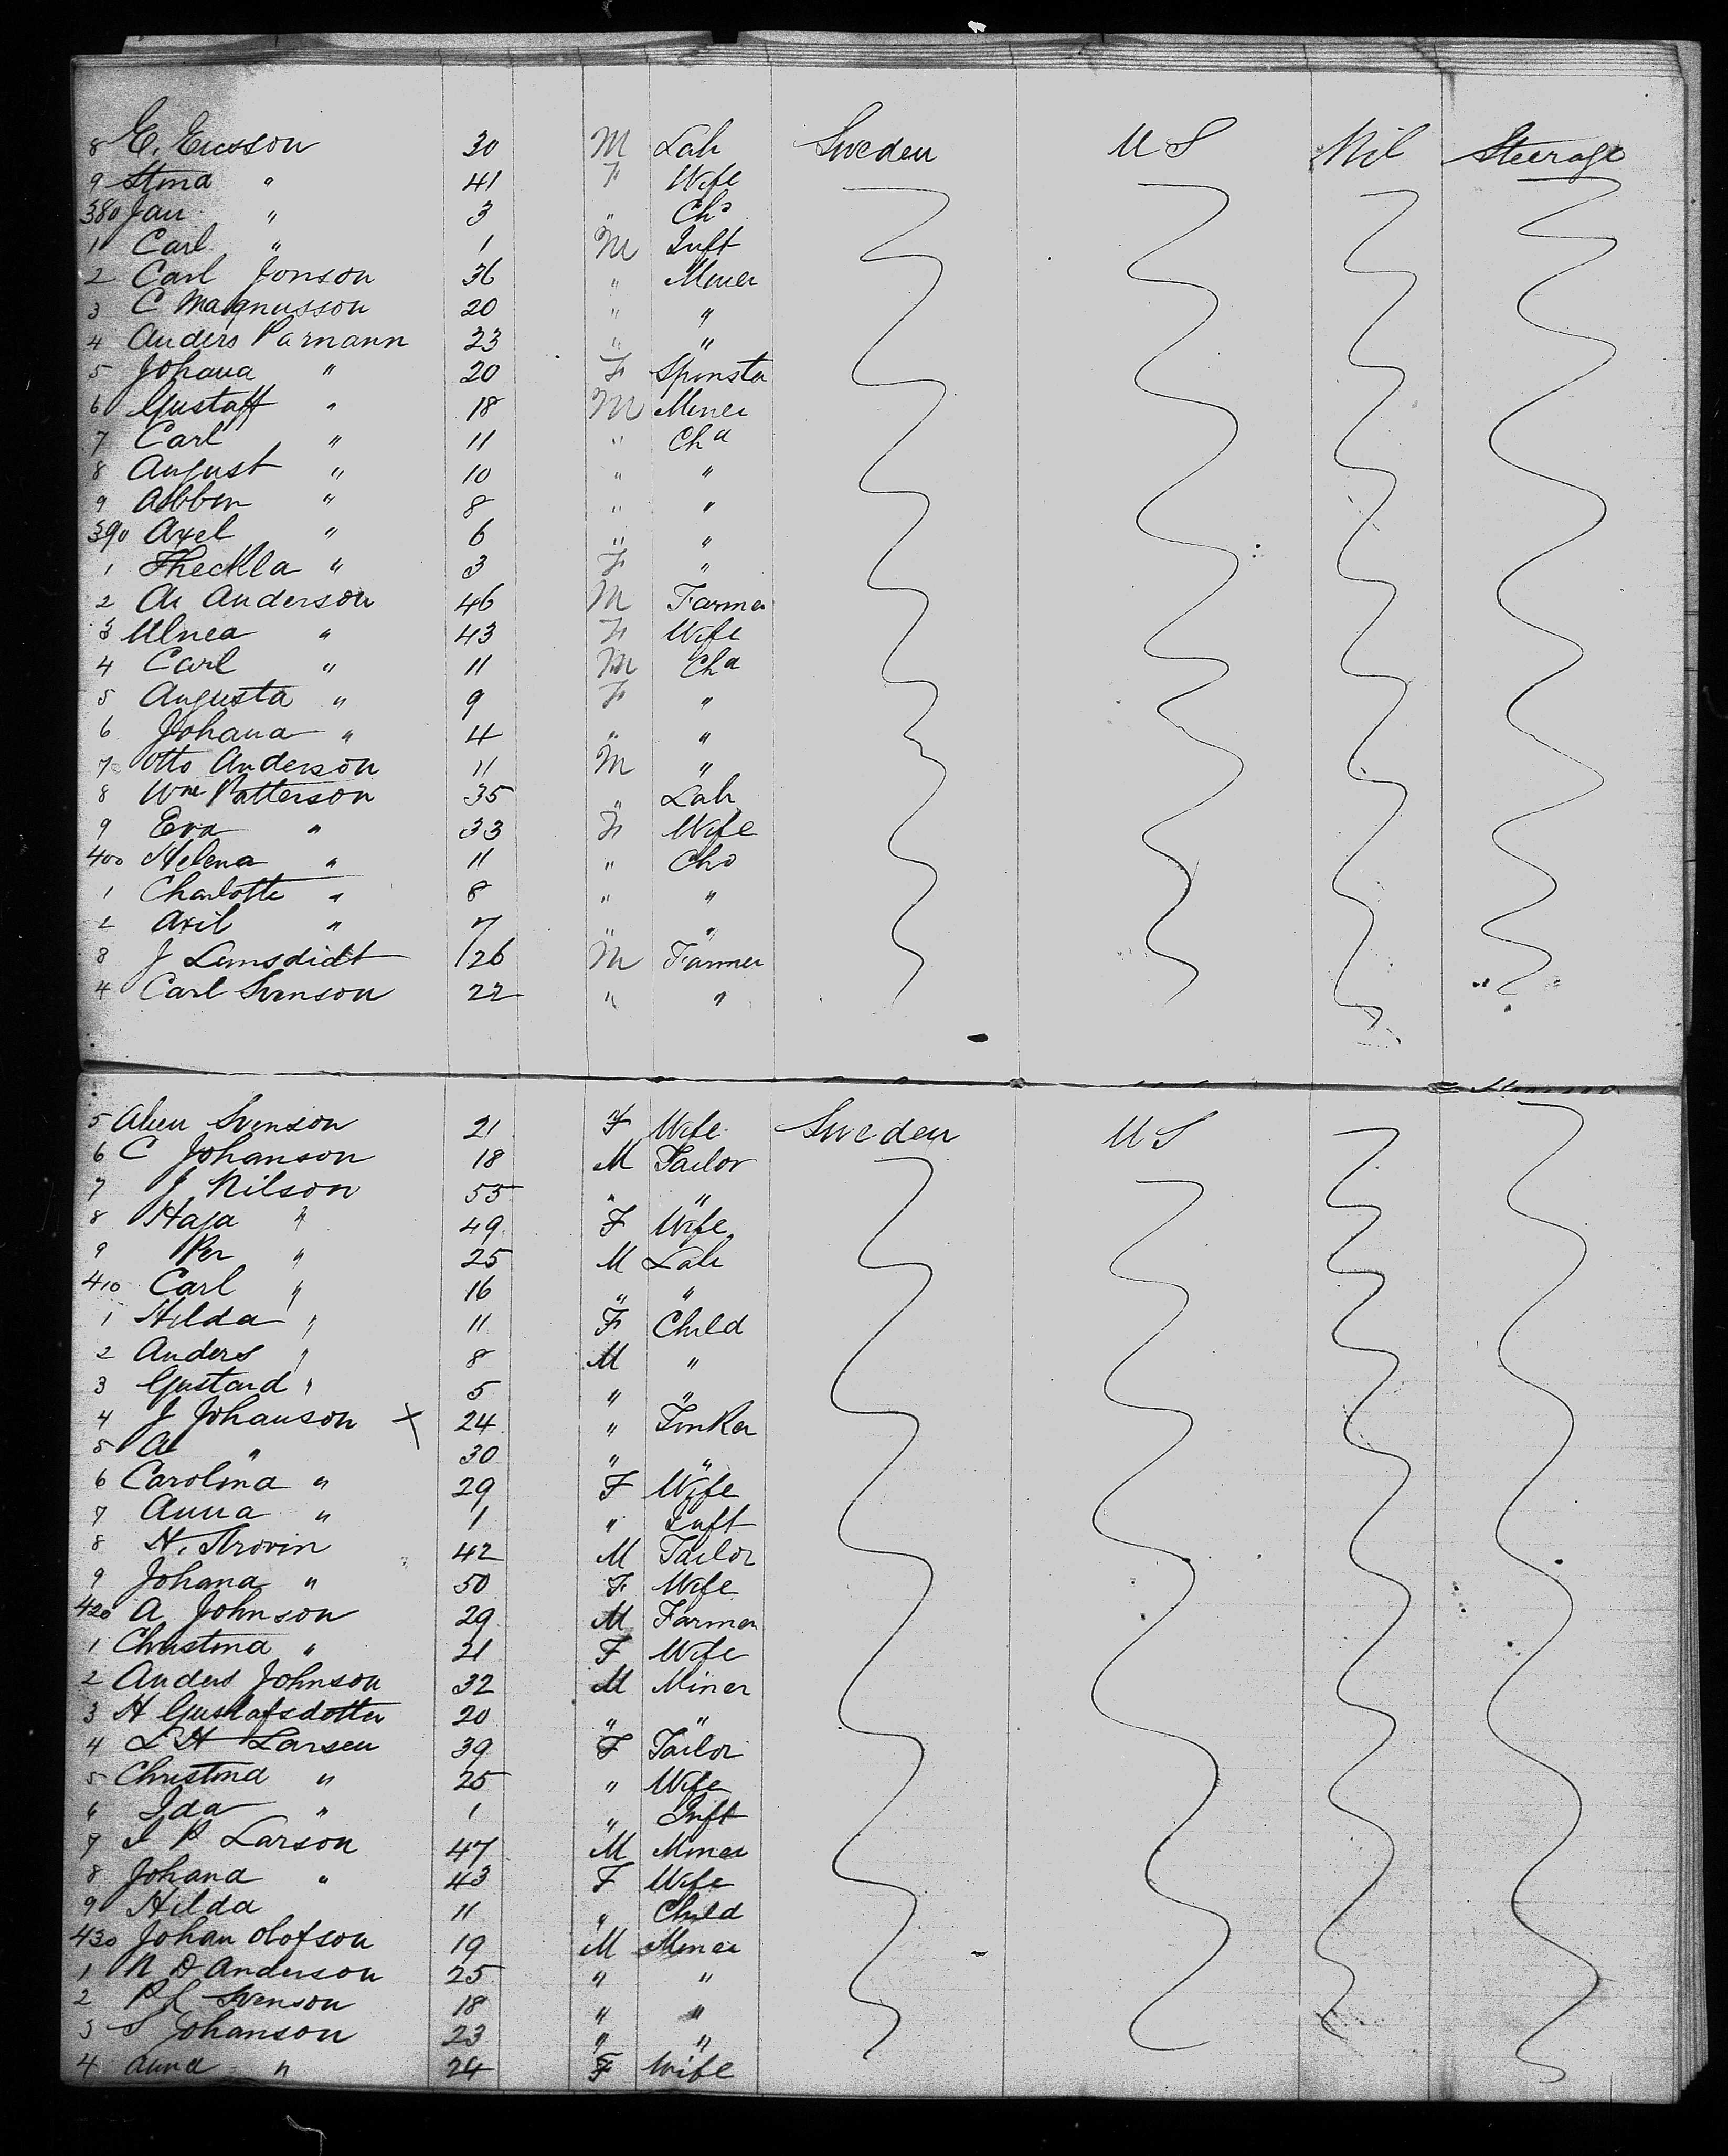 8 E. Ericsson 30 M Lab Sweden U S Nil Steerage
9 Stina " 41 F Wife
380 Jan " 3 " Chd
1 Carl " 1 M Inft
2 Carl Jonson 36 " Miner
3 C Magnusson 20 " "
4 Anders Parmann 23 " "
5 Johana " 20 F Spinster
6 Gustaff " 18 M Miner
7 Carl " 11 " Chd
8 August " 10 " "
9 " 8 " "
390 Axel " 6 " "
1 Theckla " 3 F "
2 An Anderson 46 M Farmer
3 Ulnea " 43 F Wife
4 Carl " 11 M Chd
5 Augusta " 9 F "
6 Johana " 4 " "
7 Otto Anderson 11 M "
8 Wm Patterson 35 " Lab
9 Eva " 33 F Wife
400 Helena " 11 " Chd
1 Charlotte " 8 " "
2 Axil " 7 " "
3 J 26 M Farmer
4 Carl Svenson 22 " "
5 Svenson 21 F Wife Sweden U S
6 C Johanson 18 M Tailor
7 J Nilson 55 " "
8 Haja " 49 F Wife
9 Per " 25 M Lab
410 Carl " 16 " "
1 Hilda " 11 F Child
2 Anders " 8 M "
3 Gustard " 5 " "
4 J Johanson X 24 " Tinker
5 A " 30 " "
6 Carolina " 29 F Wife
7 Anna " 1 " Inft
8 H. Strovin 42 M Tailor
9 Johana " 50 F Wife
420 A Johnson 29 M Farmer
1 Christina " 21 F Wife
2 Anders Johnson 32 M Miner
3 H Gustafsdotter 20 " "
4 L H Larsen 39 F Tailor
5 Christina " 25 " Wife
6 Ida " 1 " Inft
7 I P Larson 47 M Miner
8 Johana " 43 F Wife
9 Hilda 11 " Child
430 Johan Olofson 19 M Miner
1 N D Anderson 25 " "
2 Svenson 18 " "
3 S Johanson 23 " "
4 Anna " 24 F Wife